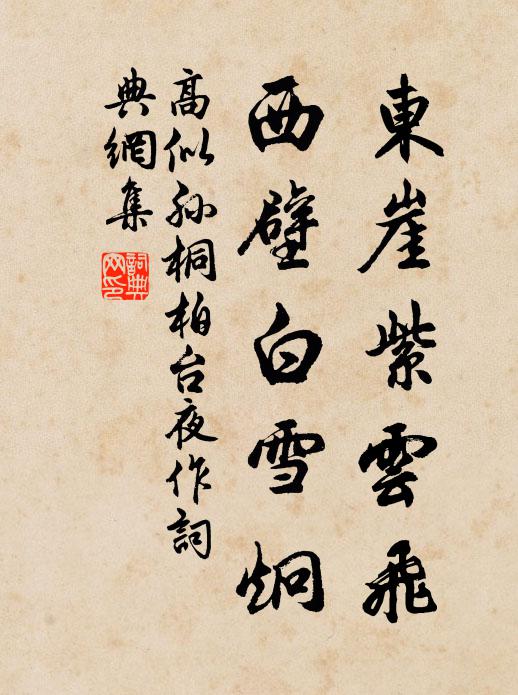 東崖紫雲飛
西壁白雪炯
高似孙桐柏台夜作詞
典網集
詞典网印